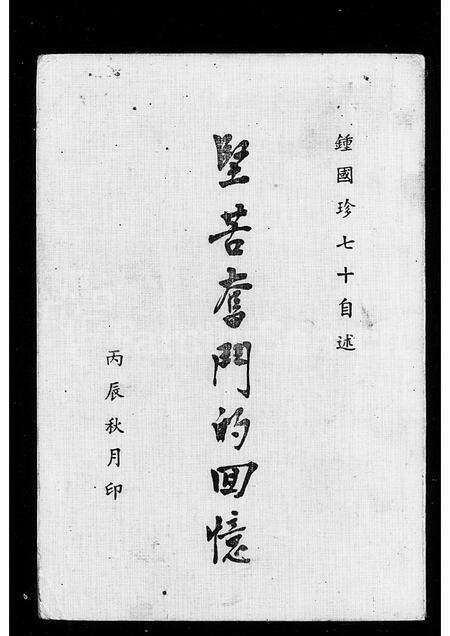 鍾國珍七十自述
堅苦奮鬥的回憶
丙辰秋月印